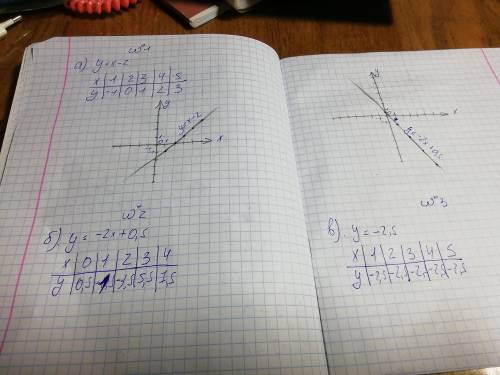 №1
а) y=x-2
x | 1 | 2 | 3 | 4 | 5
y | -1 | 0 | 1 | 2 | 3
y
y=x-2
x
№2
б). y = -2x+0,5
x | 0 | 1 | 2 | 3 | 4
y | 0,5 | -1,5 | 5,5 | 7,5
y
x
y=-2x+0,5
№3
в). y=-2,5
x | 1 | 2 | 3 | 4 | 5
y | -2,5 | -2,5 | -2,5 | -2,5 | -2,5